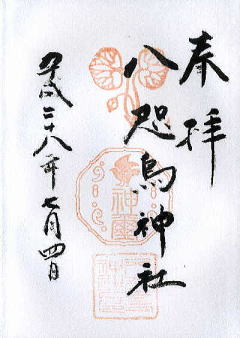 奉拝
八咫烏神社
平成二十八年七月四日